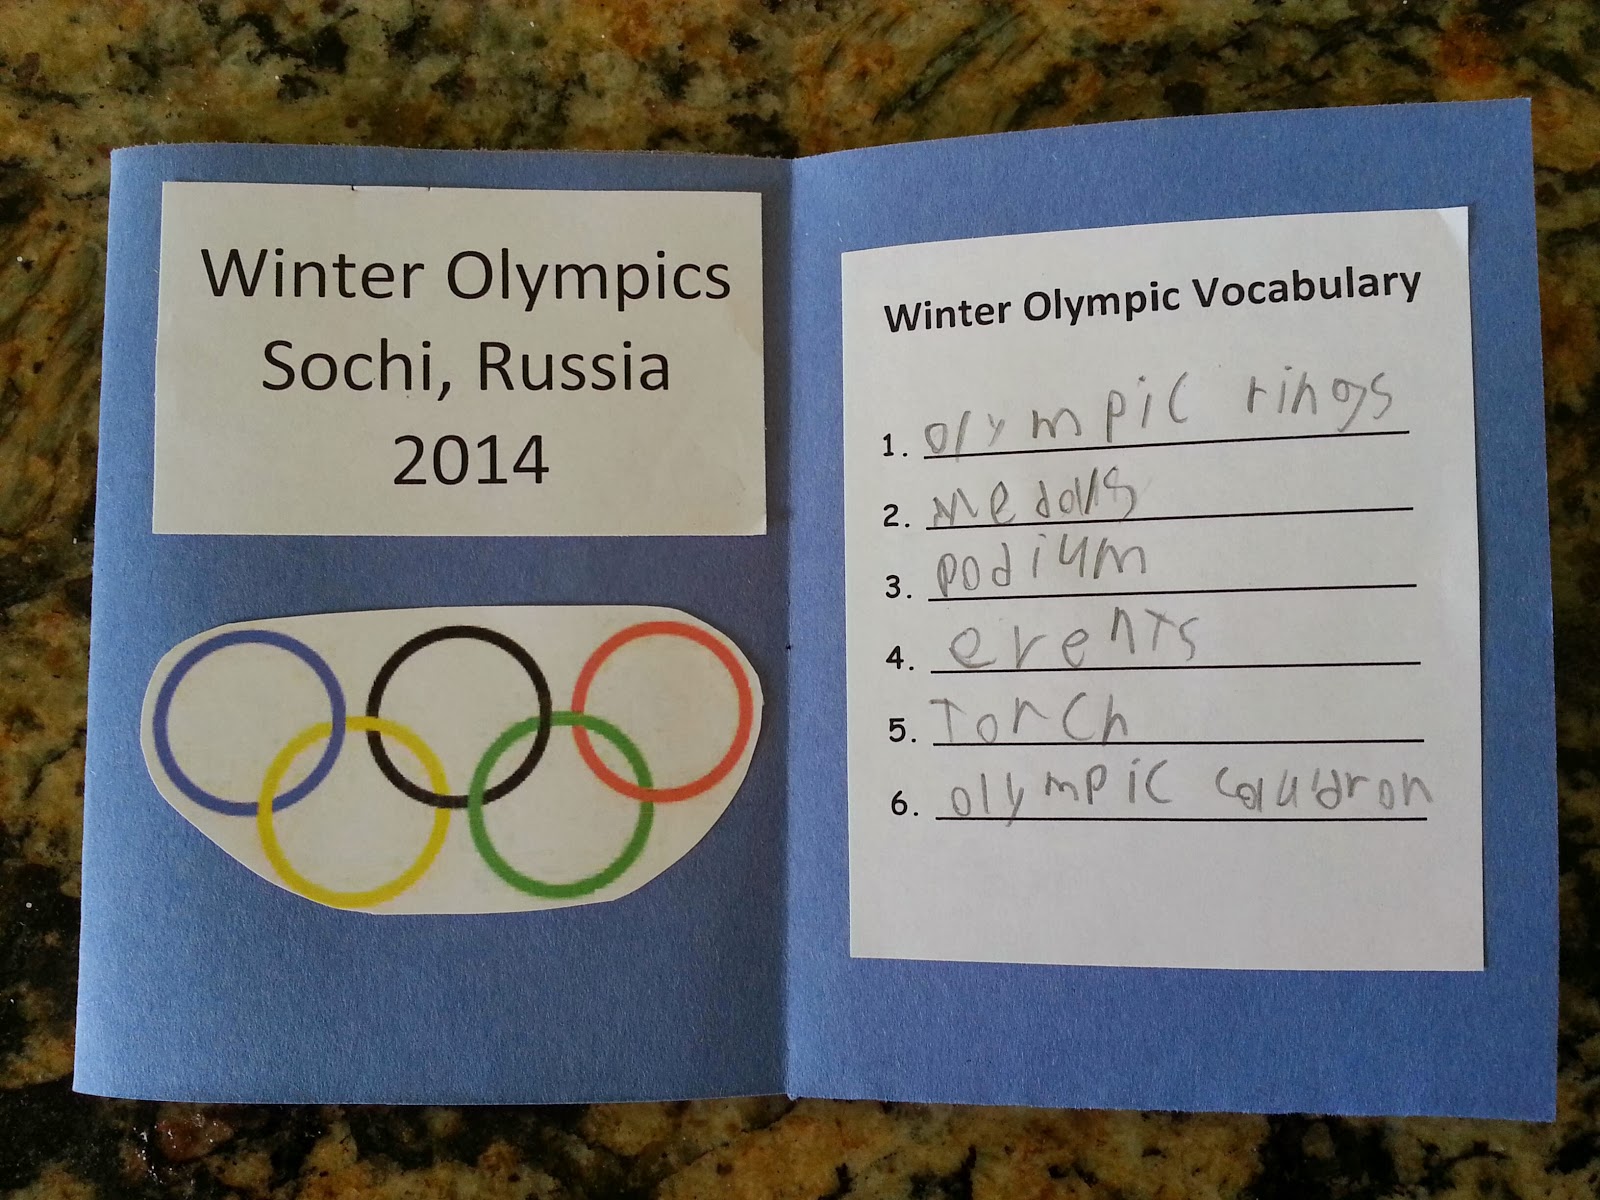 Winter Olympics
Sochi, Russia
2014
Winter Olympic Vocabulary
1. olympic rings
2. medals
3. podium
4. events
5. Torch
6. olympic cauldron